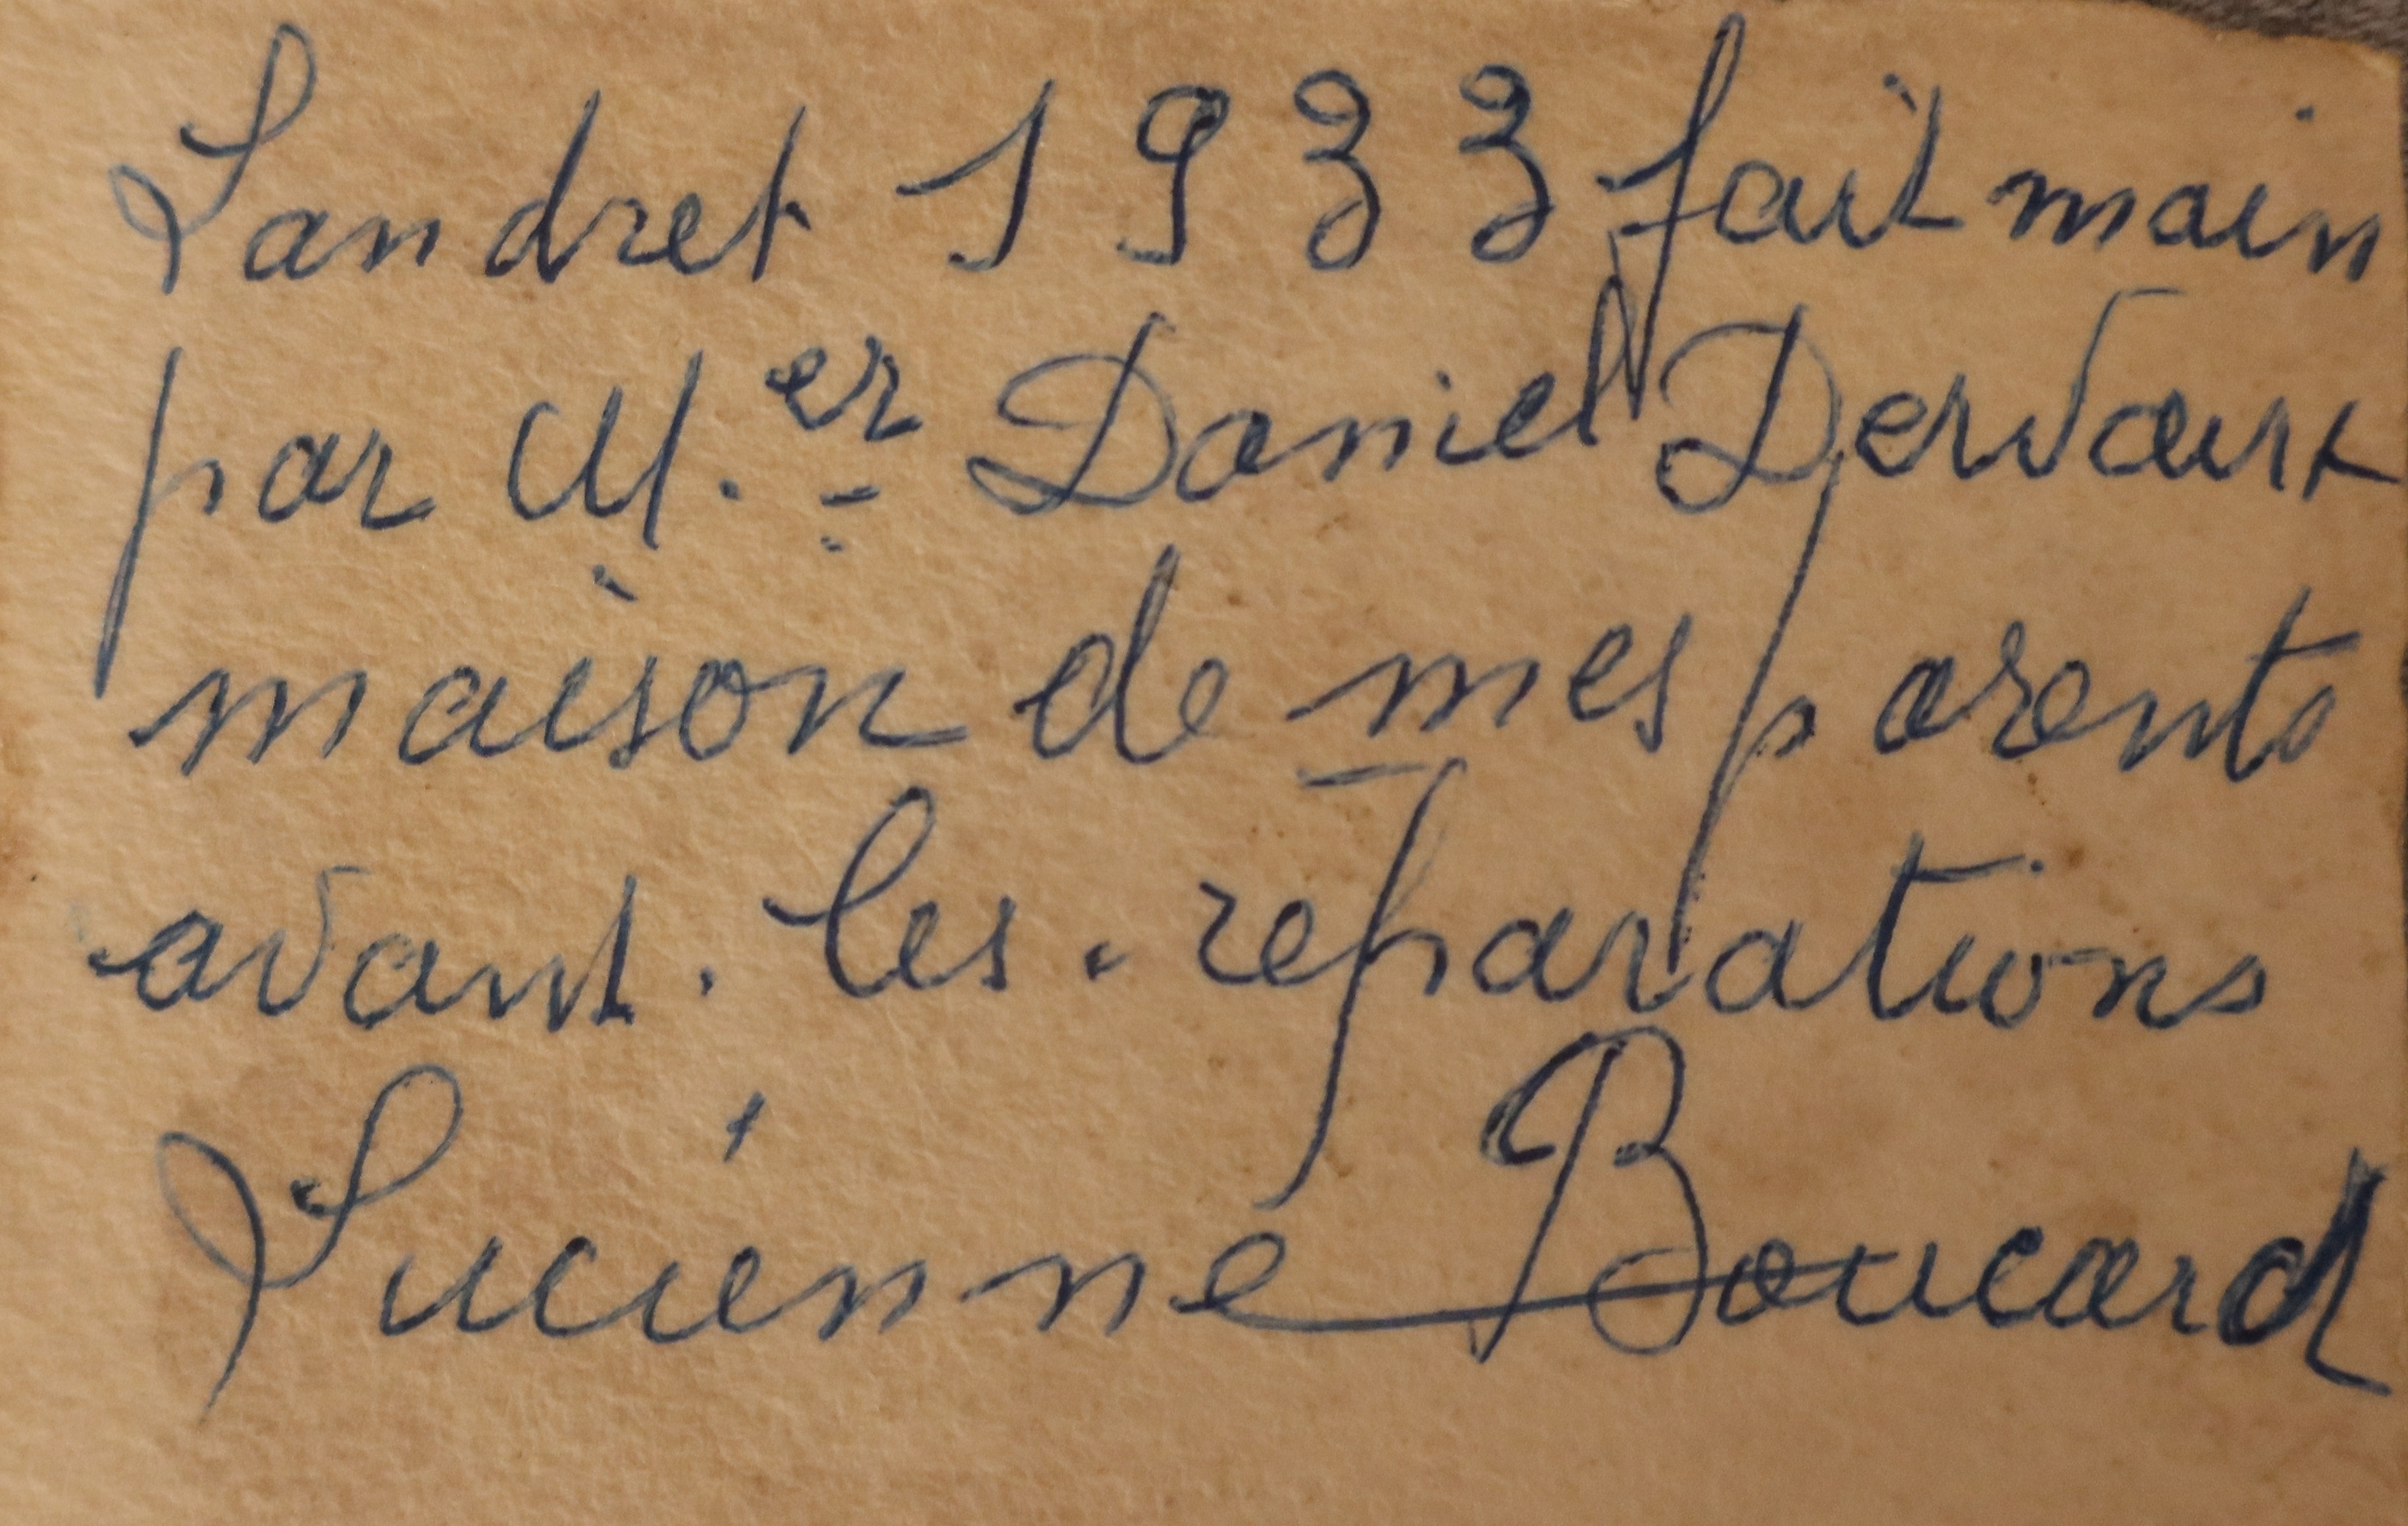 Landret 1933 fait main
par M.er Daniel Dervaux
maison de mes parents
avant. les. reparations
Lucienne Boucard